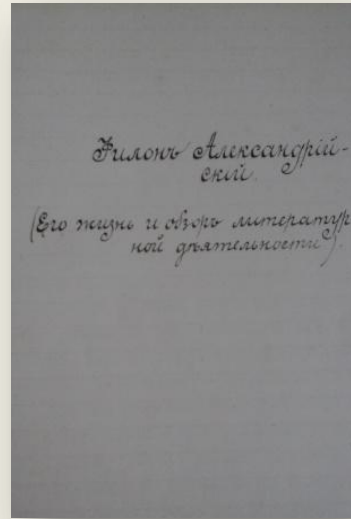 Филонъ Александрій-
скій.
(Его жизнь и обзоръ литератур
ной дѣятельности).